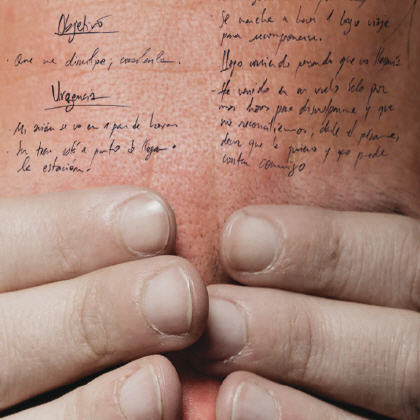 Objetivo
· Que me disculpe; convencerla.
Urgencia
· Mi avión se va en un par de horas
· Su tren está a punto de llegar a
la estación.
Se marcha a hacer 1 largo viaje
para
llego
He venido en un vuelo solo por
unas horas para disculparme y que
nos reconciliemos, desde el
decir que la quiero y que puede
contar conmigo